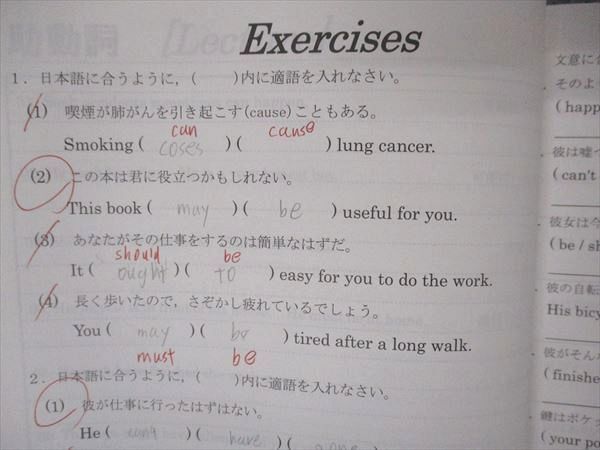 Exercises
1. 日本語に合うように, (　)内に適語を入れなさい。
(1) 喫煙が肺がんを引き起こす(cause)こともある。
can cause
Smoking ( coses )( ) lung cancer.
(2) この本は君に役立つかもしれない。
This book ( may )( be ) useful for you.
(3) あなたがその仕事をするのは簡単なはずだ。
should be
It ( ought )( to ) easy for you to do the work.
(4) 長く歩いたので, さぞかし疲れているでしょう。
You ( may )( be ) tired after a long walk.
must be
2. 日本語に合うように, (　)内に適語を入れなさい。
(1) 彼が仕事に行ったはずはない。
He ( can't )( have )( gone
文意に
そのよ
( happ
彼は嘘
( can't
彼女は今
( be / sh
彼の自転
His bicy
彼がそん
( finishe
鍵はポケ
( your po